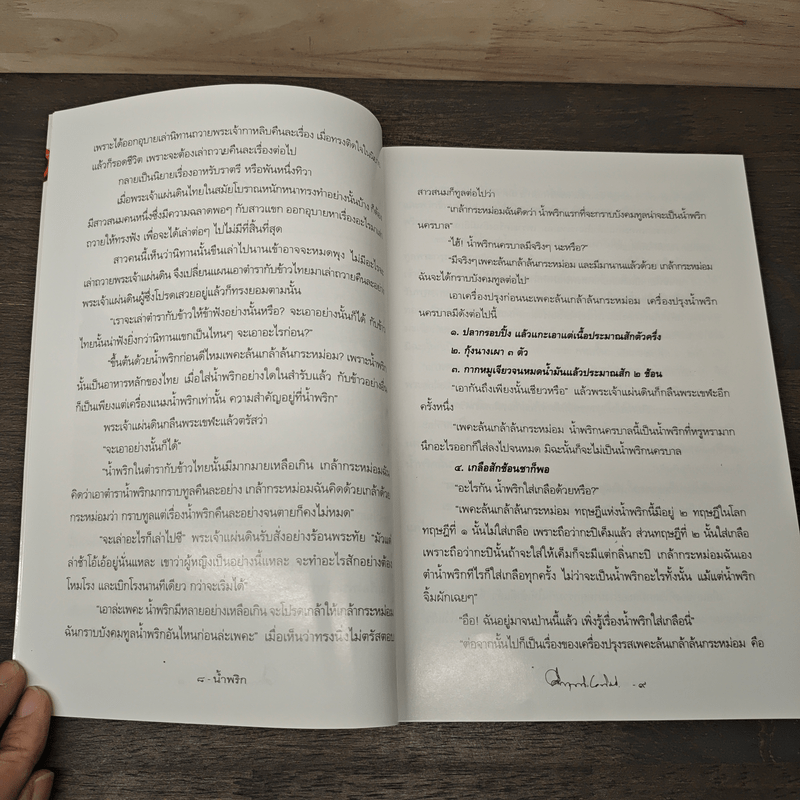 เพราะได้ออกอุบายเล่านิทานถวายพระเจ้ากาหลิบคืนละเรื่อง เมื่อทรงติดใจใน
แล้วก็รอดชีวิต เพราะจะต้องเล่าถวายคืนละเรื่องต่อไป
กลายเป็นนิยายเรื่องอาหรับราตรี หรือพันหนึ่งทิวา
เมื่อพระเจ้าแผ่นดินไทยในสมัยโบราณหนักหนาทรงทำอย่างนั้นบ้าง
มีสาวสนมคนหนึ่งซึ่งมีความฉลาดพอๆ กับสาวแขก ออกอุบายหาเรื่องอะไรมาเล่า
ถวายให้ทรงฟัง เพื่อจะได้เล่าต่อๆ ไปไม่มีที่สิ้นสุด
สาวคนนี้เห็นว่านิทานนั้นขืนเล่าไปนานเข้าอาจจะหมดพุง ไม่มีอะไรจะ
เล่าถวายพระเจ้าแผ่นดิน จึงเปลี่ยนแผนเอาตำรากับข้าวไทยมาเล่าถวายคืนละอย่าง
พระเจ้าแผ่นดินผู้ซึ่งโปรดเสวยอยู่แล้วก็ทรงยอมตามนั้น
“เราจะเล่าตำรากับข้าวให้ข้าฟังอย่างนั้นหรือ? จะเอาอย่างนั้นก็ได้ กับข้าว
ไทยนั้นน่าฟังยิ่งกว่านิทานแขกเป็นไหนๆ จะเอาอะไรก่อน?”
“ขึ้นต้นด้วยน้ำพริกก่อนดีไหมเพคะล้นเกล้าล้นกระหม่อม? เพราะน้ำพริก
นั้นเป็นอาหารหลักของไทย เมื่อใส่น้ำพริกอย่างใดในสำรับแล้ว กับข้าวอย่างอื่น
ก็เป็นเพียงแต่เครื่องแนมน้ำพริกเท่านั้น ความสำคัญอยู่ที่น้ำพริก”
พระเจ้าแผ่นดินกลืนพระเขฬะแล้วตรัสว่า
“จะเอาอย่างนั้นก็ได้”
“น้ำพริกในตำรากับข้าวไทยนั้นมีมากมายเหลือเกิน เกล้ากระหม่อมฉัน
คิดว่าเอาตำราน้ำพริกมากราบทูลคืนละอย่าง เกล้ากระหม่อมฉันคิดด้วยเกล้าด้วย
กระหม่อมว่า กราบทูลแต่เรื่องน้ำพริกคืนละอย่างจนตายก็คงไม่หมด”
“จะเล่าอะไรก็เล่าไปซี” พระเจ้าแผ่นดินรับสั่งอย่างร้อนพระทัย “มัวแต่
ล่าช้าโอ้เอ้อยู่นั่นแหละ เขาว่าผู้หญิงเป็นอย่างนี้แหละ จะทำอะไรสักอย่างต้อง
โหมโรง และเบิกโรงนานทีเดียว กว่าจะเริ่มได้”
“เอาล่ะเพคะ น้ำพริกมีหลายอย่างเหลือเกิน จะโปรดเกล้าให้เกล้ากระหม่อม
ฉันกราบบังคมทูลน้ำพริกอันไหนก่อนล่ะเพคะ” เมื่อเห็นว่าทรงนิ่งไม่ตรัสตอบ
๘ - น้ำพริก
สาวสนมก็ทูลต่อไปว่า
“เกล้ากระหม่อมฉันคิดว่า น้ำพริกแรกที่จะกราบบังคมทูลน่าจะเป็นน้ำพริก
นครบาล”
“ไฮ้! น้ำพริกนครบาลมีจริงๆ นะหรือ?”
“มีจริงๆเพคะล้นเกล้าล้นกระหม่อม และมีมานานแล้วด้วย เกล้ากระหม่อม
ฉันจะได้กราบบังคมทูลต่อไป”
เอาเครื่องปรุงก่อนนะเพคะล้นเกล้าล้นกระหม่อม เครื่องปรุงน้ำพริก
นครบาลมีดังต่อไปนี้
๑. ปลากรอบปิ้ง แล้วแกะเอาแต่เนื้อประมาณสักตัวครึ่ง
๒. กุ้งนางเผา ๓ ตัว
๓. กากหมูเจียวจนหมดน้ำมันแล้วประมาณสัก ๒ ช้อน
“เอากันถึงเพียงนั้นเชียวหรือ” แล้วพระเจ้าแผ่นดินก็กลืนพระเขฬะอีก
ครั้งหนึ่ง
“เพคะล้นเกล้าล้นกระหม่อม น้ำพริกนครบาลนี้เป็นน้ำพริกที่หรูหรามาก
นึกอะไรออกก็ใส่ลงไปจนหมด มิฉะนั้นก็จะไม่เป็นน้ำพริกนครบาล
๔. เกลือสักช้อนชาก็พอ
“อะไรกัน น้ำพริกใส่เกลือด้วยหรือ?”
“เพคะล้นเกล้าล้นกระหม่อม ทฤษฎีแห่งน้ำพริกนี้มีอยู่ ๒ ทฤษฎีในโลก
ทฤษฎีที่ ๑ นั้นไม่ใส่เกลือ เพราะถือว่ากะปิเค็มแล้ว ส่วนทฤษฎีที่ ๒ นั้นใส่เกลือ
เพราะถือว่ากะปินั้นถ้าจะใส่ให้เค็มก็จะมีแต่กลิ่นกะปิ เกล้ากระหม่อมฉันเอง
ตำน้ำพริกทีไรก็ใส่เกลือทุกครั้ง ไม่ว่าจะเป็นน้ำพริกอะไรทั้งนั้น แม้แต่น้ำพริก
จิ้มผักเฉยๆ”
“อือ! ฉันอยู่มาจนป่านนี้แล้ว เพิ่งรู้เรื่องน้ำพริกใส่เกลือนี่”
“ต่อจากนั้นไปก็เป็นเรื่องของเครื่องปรุงรสเพคะล้นเกล้าล้นกระหม่อม คือ
- ๙